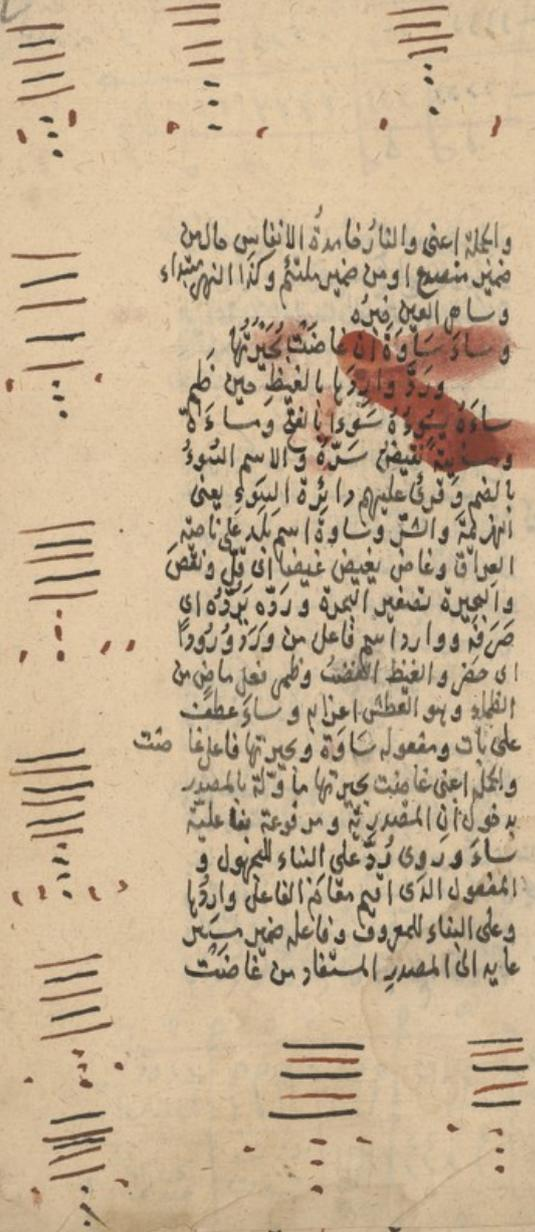 والجملة اعنى والنار خامدة الانفاس حال من
ضمير منصدع او من ضمير ملتئم وكذا النهر مبتداء
وساهى العين خبره
وسَاءَ سَاوَةَ اَنْ غَاضَتْ بُحَيْرَتُهَا
وَرُدَّ وَارِدُهَا بالغيظ حين ظمى
ساءَهُ يسُوءُهُ سَوءًا بالفتح ومساءَةً
ومسائيةً نقيض سَرَّهُ والاسم السُوءُ
بالضم وقرئ عليهم دائرة السَوءِ يعنى
الهزيمة والشرّ وساوة اسم بلد على ناحية
العراق وغاض يغيض غيضا اى قلّ ونقصَ
والبحيرة تصغير البحرة وردّه يَرُدُّه اى
صَرَفَه ووارد اسم فاعل من وَرَدَ وُرُودًا
اى حضر والغيظ الغضبُ وظمى فعل ماض من
الظماء وهو العطش اعرابه وساءَ عطف
على بات ومفعوله سَاوَة وبحيرتها فاعل غاضت
والجملة اعنى غاضت بحيرتها مأوّلة بالمصدر
بدخول ان المصدرية ومرفوعة بفاعلية
ساءَ وروى رُدَّ على البناء للمجهول و
المفعول الذى اقيم مقام الفاعل واردُها
وعلى البناء للمعروف وفاعله ضمير مستتر
عايد الى المصدر المستفاد من غاضَتْ